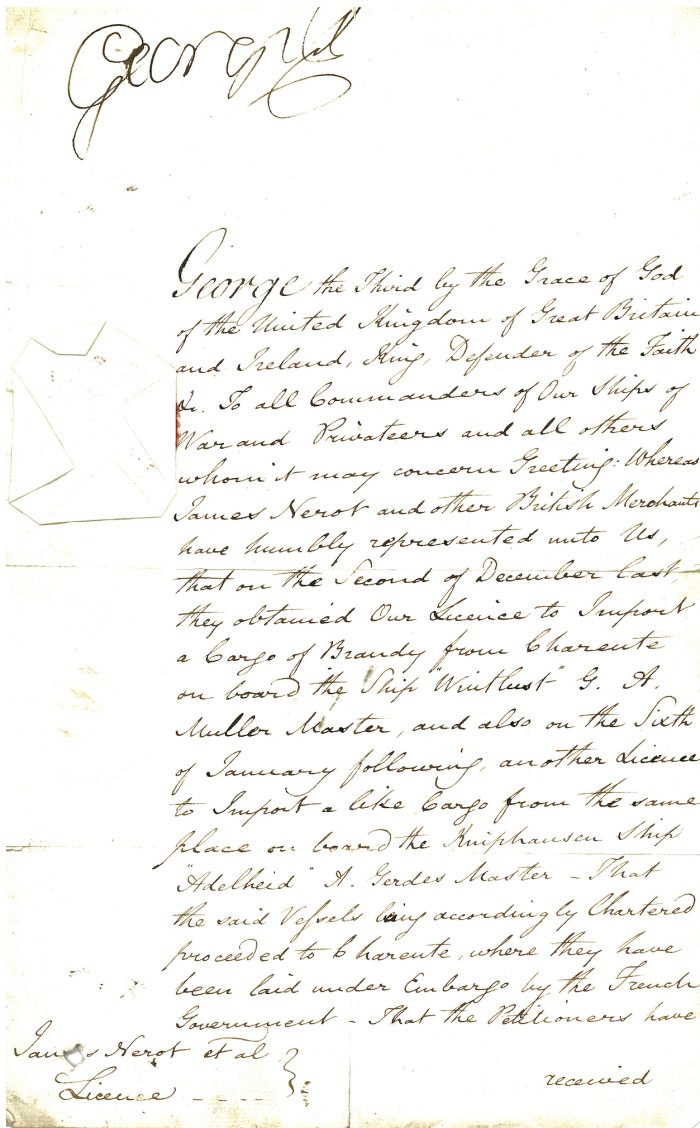 George R
George the Third by the Grace of God
of the United Kingdom of Great Britain
and Ireland, King, Defender of the Faith
&c. To all Commanders of Our Ships of
War and Privateers and all others
whom it may concern Greeting: Whereas
James Nerot and other British Merchants
have humbly represented unto Us,
that on the Second of December last
they obtained Our Licence to Import
a Cargo of Brandy from Charente
on board the Ship "Wintlust" G. A.
Muller Master, and also on the Sixth
of January following, another Licence
to Import a like Cargo from the same
place on board the Kniphausen Ship
"Adelheid" A. Gerdes Master – That
the said Vessels being accordingly Chartered
proceeded to Charente, where they have
been laid under Embargo by the French
Government – That the Petitioners have
James Nerot et al
Licence - - - -
received